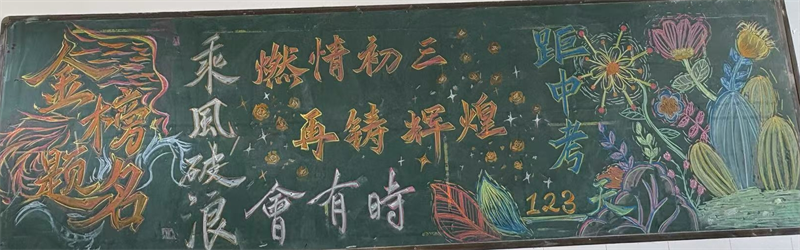 金榜题名
乘風破浪
會有時
燃情初三
再铸辉煌
距中考
123天